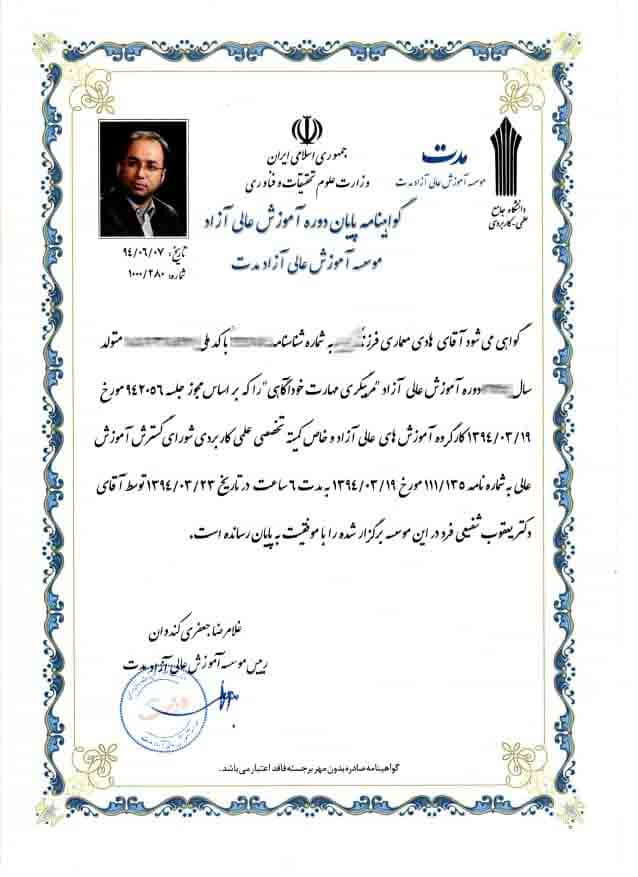 جمهوری اسلامی ایران
وزارت علوم تحقیقات و فناوری
مدت
موسسه آموزش عالی آزاد مدت
دانشگاه جامع
علمی-کاربردی
گواهینامه پایان دوره آموزش عالی آزاد
موسسه آموزش عالی آزاد مدت
تاریخ: ۹۴/۰۶/۰۷
شماره: ۱۰۰۰/۲۸۰
گواهی می شود آقای هادی معماری فرزند به شماره شناسنامه با کد ملی متولد
سال دوره آموزش عالی آزاد "مربیگری مهارت خودآگاهی" را که بر اساس مجوز جلسه ۹۴۲۰۵۶ مورخ
۱۳۹۴/۰۳/۱۹ کارگروه آموزش های عالی آزاد و خاص کمیته تخصصی علمی کاربردی شورای گسترش آموزش
عالی به شماره نامه ۱۱۱/۱۳۵ مورخ ۱۳۹۴/۰۳/۱۹ به مدت ۶ ساعت در تاریخ ۱۳۹۴/۰۳/۲۳ توسط آقای
دکتر یعقوب شفیعی فرد در این موسسه برگزار شده را با موفقیت به پایان رسانده است.
غلامرضا جعفری کندوان
رییس موسسه آموزش عالی آزاد مدت
گواهینامه صادره بدون مهر برجسته فاقد اعتبار می باشد.